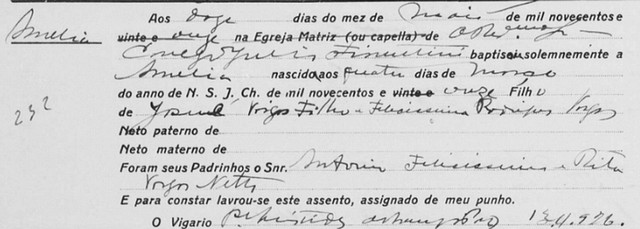 Amelia
Aos doze dias do mez de Maio de mil novecentos e
vinte e onze na Egreja Matriz (ou capella) de o Rev.mo
Conego Julio baptisei solemnemente a
Amelia nascido aos quatro dias de Março
do anno de N. S. J. Ch. de mil novecentos e vinte e onze Filho
232
de José Vargas Filho e Felicissima Rodrigues Vargas
Neto paterno de
Neto materno de
Foram seus Padrinhos o Snr. Antonio Felicissimo e Rita
Vargas Netto
E para constar lavrou-se este assento, assignado de meu punho.
O Vigario